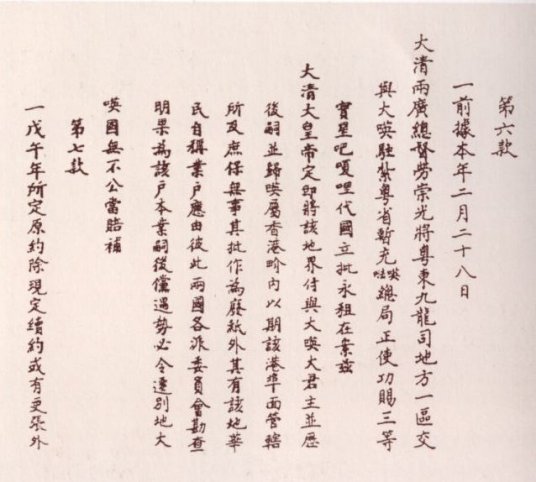 第六款
一前據本年二月二十八日
大清兩廣總督勞崇光將粵東九龍司地方一區交
與大嘆駐紮粵省暫充嘆咭總局正使功賜三等
寶星吧嗄哩代國立批永租在案茲
大清大皇帝定即將該地界付與大嘆大君主並歷
後嗣並歸嘆屬香港界內以期該港埠面管轄
所及庶保無事其批作為廢紙外其有該地華
民自稱業戶應由彼此兩國各派委員會勘查
明果為該戶本業嗣後倘遇勢必令遷別地大
嘆國無不公當賠補
第七款
一戊午年所定原約除現定續約或有更張外